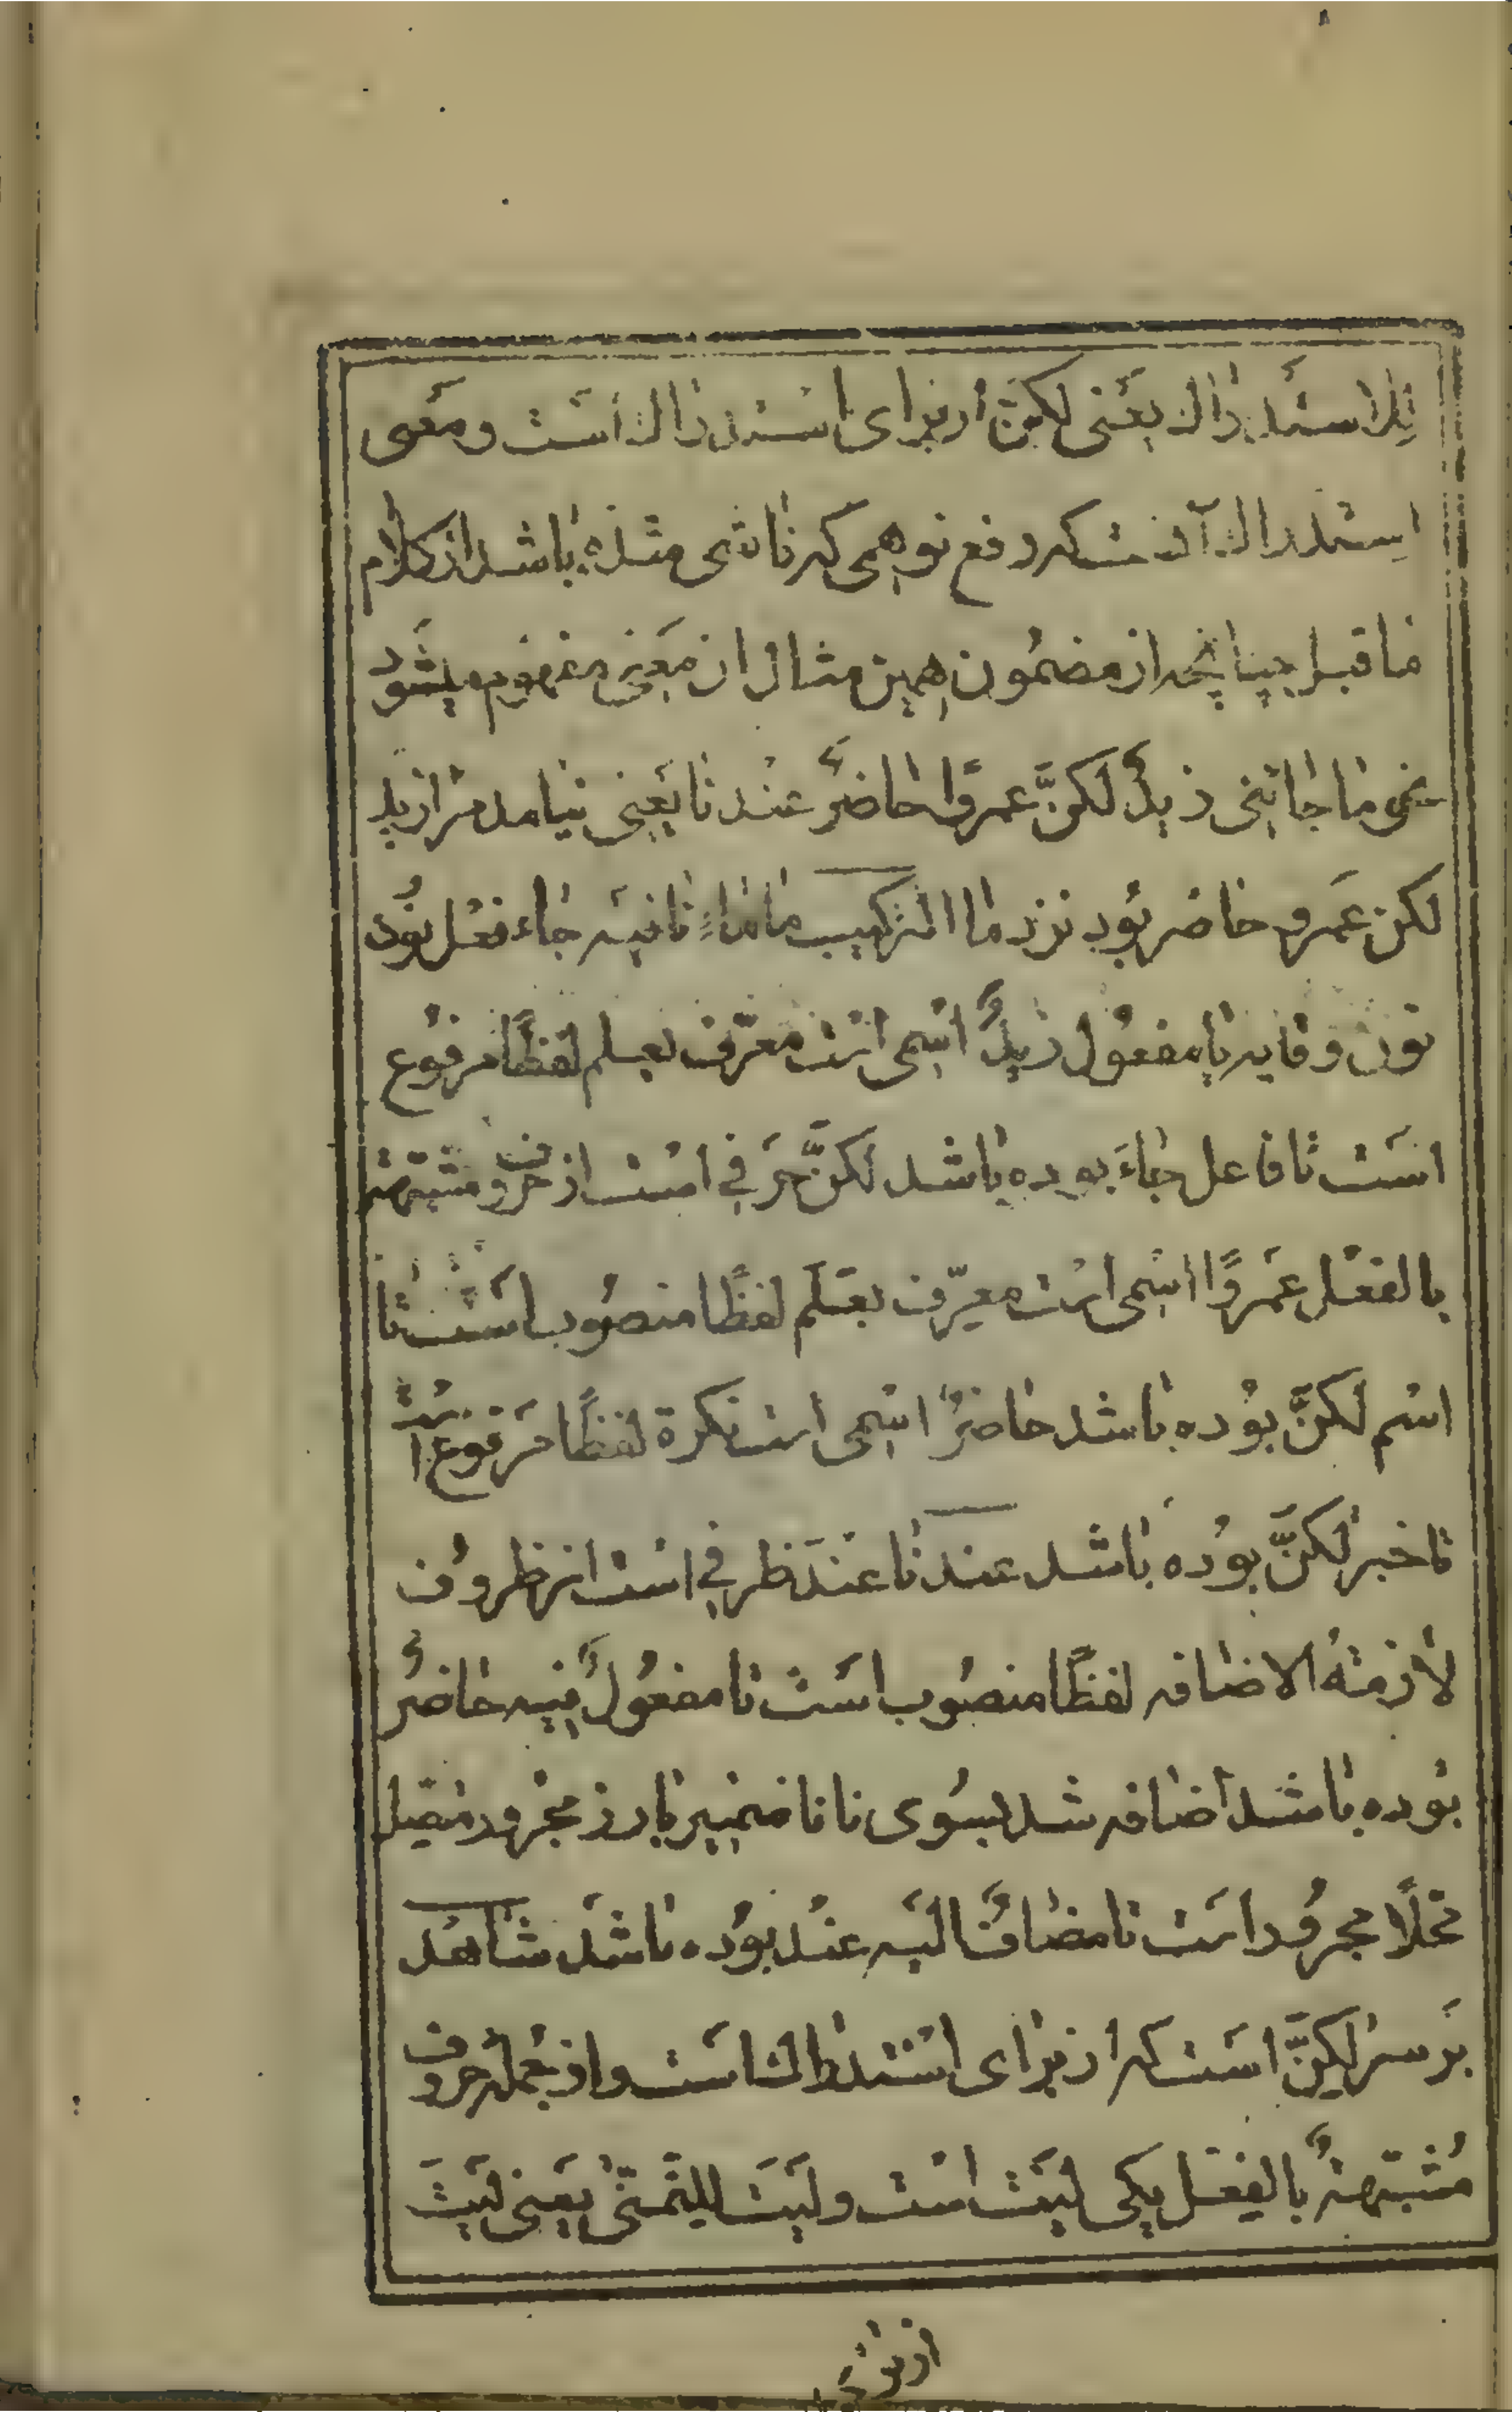 لِلاستدراك یعنی لکنّ از برای استدراك است و معنی
اِستدراك آنست که رفع توهمی که ناشی شده باشد از کلام
ماقبل چنانچه از مضمُون همین مثال ان مَعنی مفهوم میشود
نحو ما جائنی زیدٌ لکنَّ عمروًا حاضرٌ عندنا یَعنی نیامد مرا زید
لکن عَمرو حاضر بُود نزد ما الترکیب ما ماءِ نافیه جاء فعل بُود
نون وقایه یا مفعُول زیدٌ اسمی است معرّف بعلم لفظًا مرفوع
است تا فاعل جاءَ بوده باشد لکنَّ حرفی است از حروف مشبّهة
بالفعل عَمروًا اسمی است معرّف بعَلَم لفظًا منصُوب است تا
اسم لکنَّ بوُده باشد حاضرٌ اسمی است نکرة لفظًا مَرفوع است
تا خبر لکنَّ بوُده باشد عندنا عندَ ظرفی است از ظروف
لازمةُ الاضافه لفظًا منصُوب است تا مفعُولٌ فیه حاضرٌ
بوده باشد اضافه شد بسُوی نا نا ضمیر بارز مجرور متصل
محلًا مجرُور است تا مضافٌ الیه عند بوُده باشد شاهد
بَر سر لکنَّ است که از برای استدراك است و از جمله حروف
مُشبّهةٌ بالفعل یکی لَیتَ است و لَیتَ للتمنّی یَعنی لَیتَ
از برای